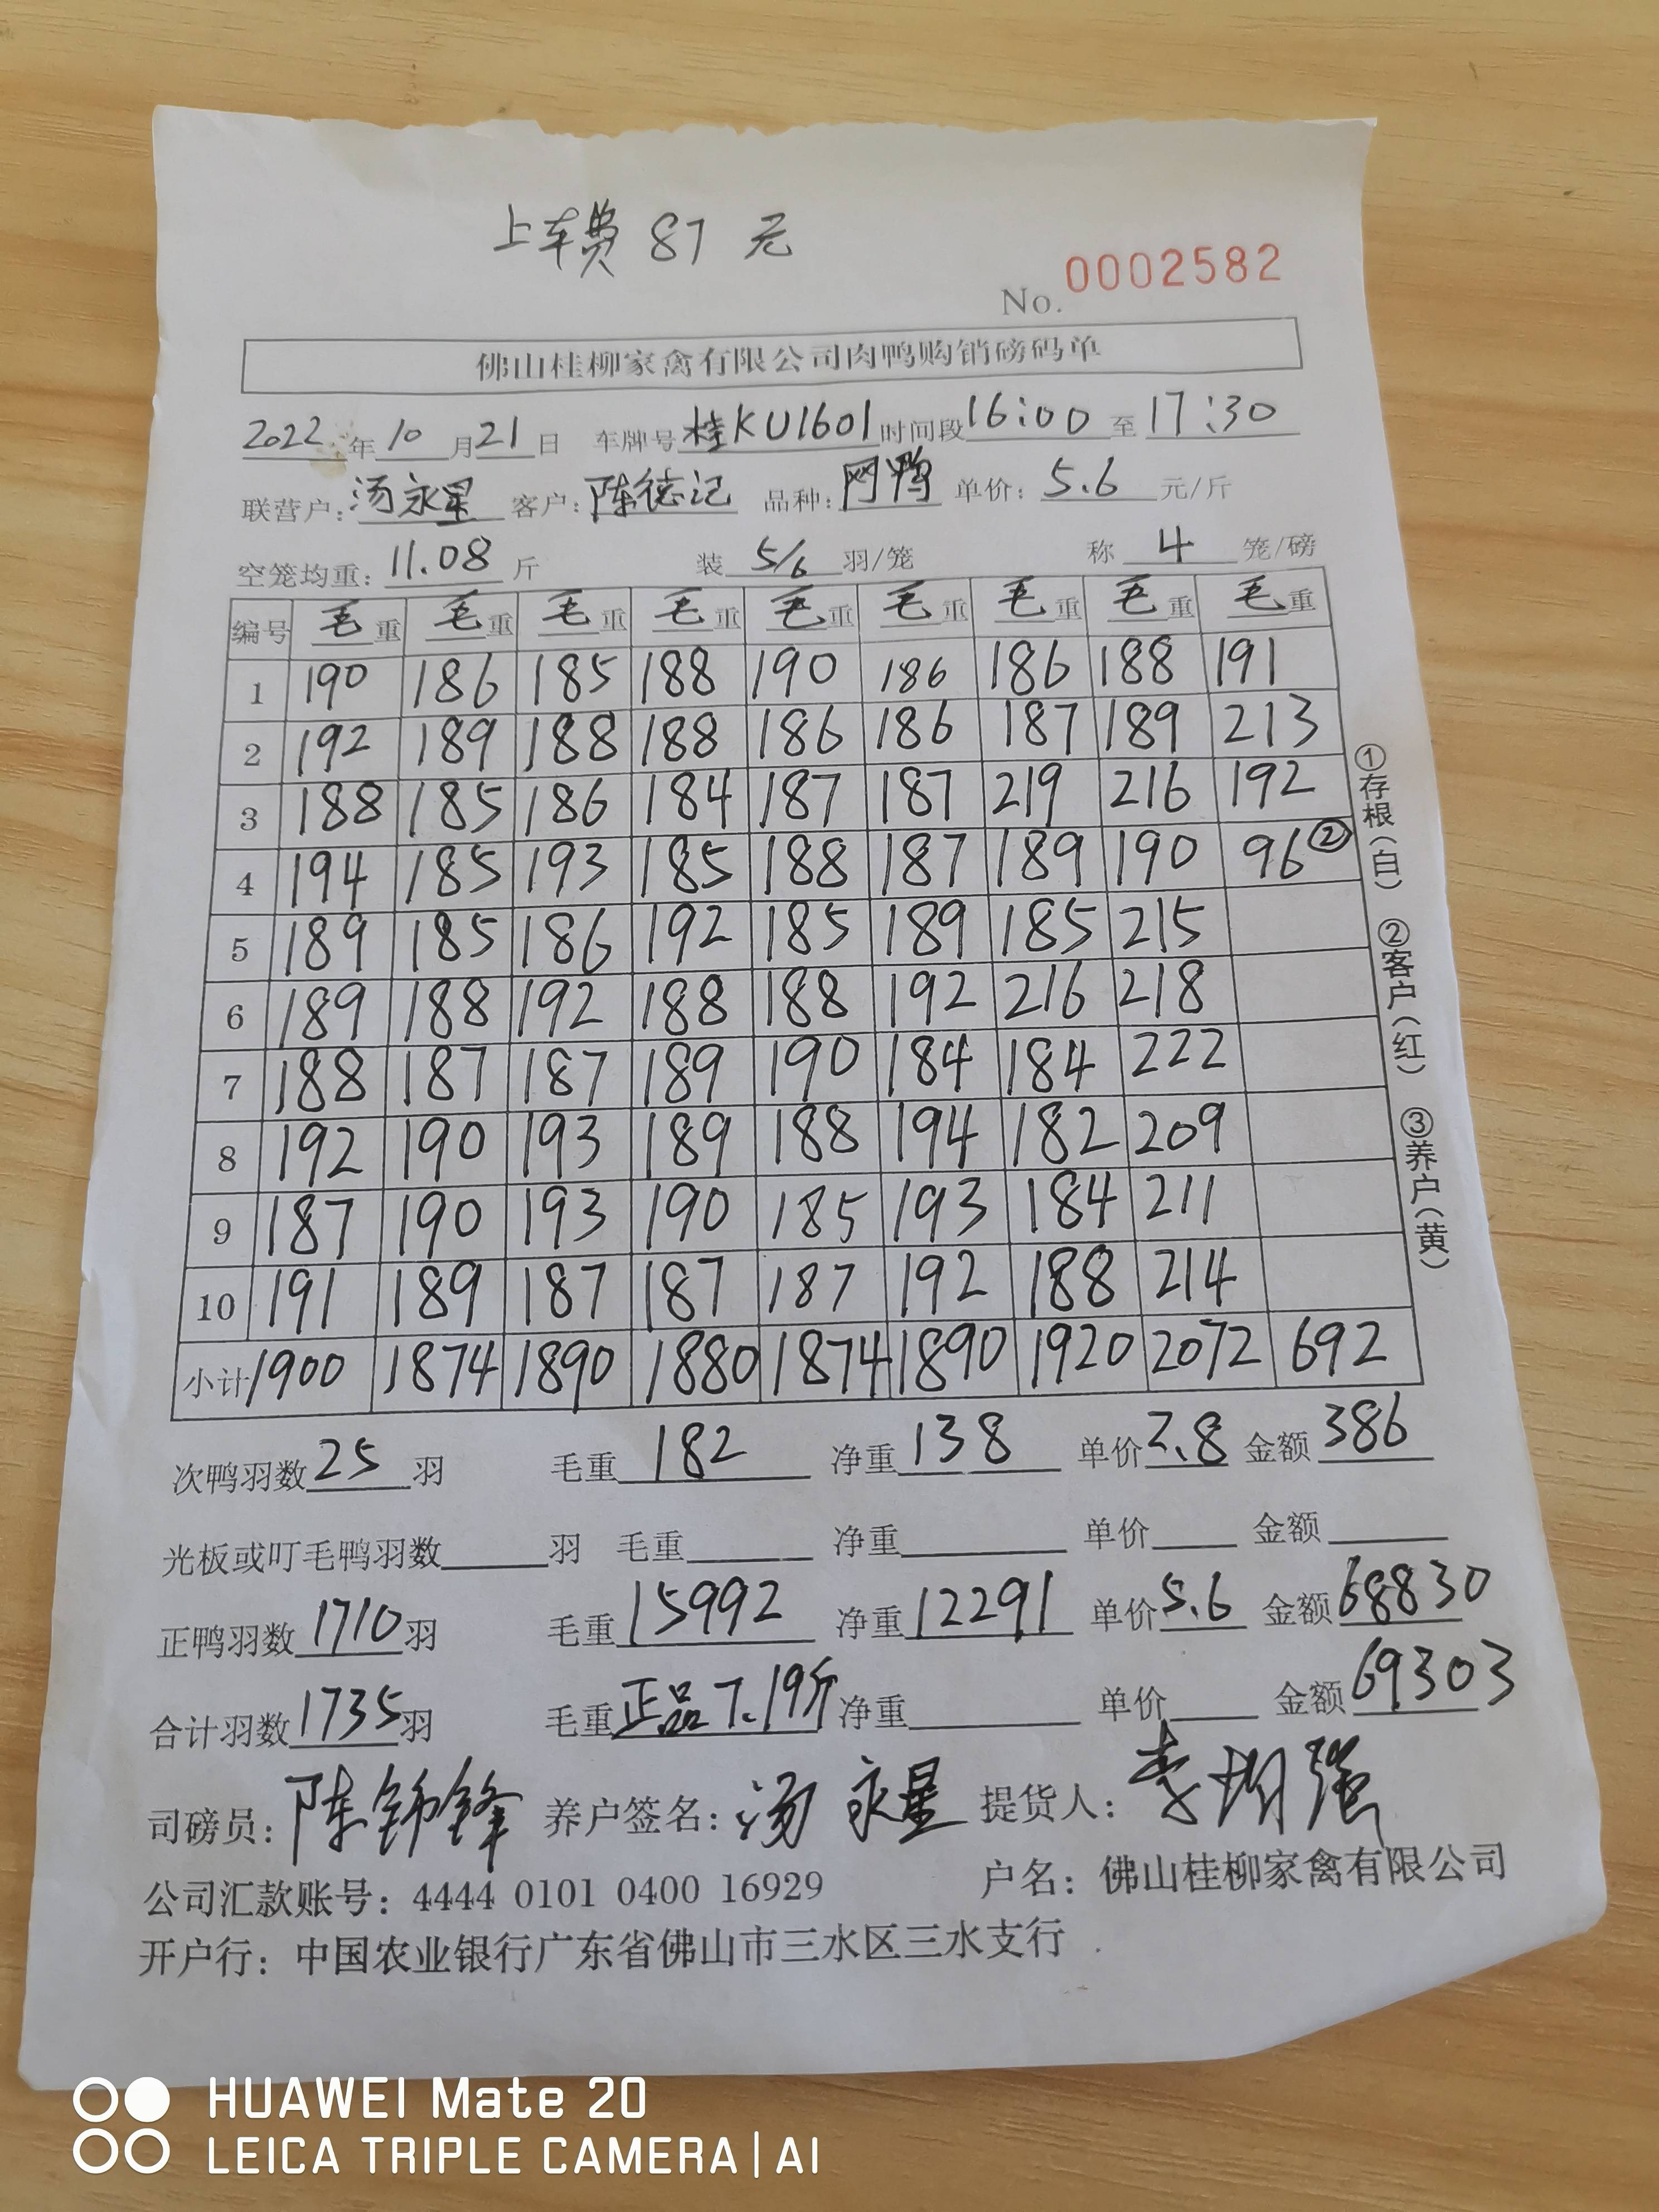 上车费 87 元
No. 0002582
佛山桂柳家禽有限公司肉鸭购销磅码单
2022年10月21日 车牌号桂KU1601时间段16:00至17:30
联营户:汤永星 客户:陈德记 品种:网鸭 单价:5.6元/斤
空笼均重:11.08斤 装5/6羽/笼 称4笼/磅
编号 毛重 毛重 毛重 毛重 毛重 毛重 毛重 毛重 毛重
1 190 186 185 188 190 186 186 188 191
2 192 189 188 188 186 186 187 189 213
3 188 185 186 184 187 187 219 216 192
4 194 185 193 185 188 187 189 190 96②
5 189 185 186 192 185 189 185 215
6 189 188 192 188 188 192 216 218
7 188 187 187 189 190 184 184 222
8 192 190 193 189 188 194 182 209
9 187 190 193 190 185 193 184 211
10 191 189 187 187 187 192 188 214
小计 1900 1874 1890 1880 1874 1890 1920 2072 692
①存根(白) ②客户(红) ③养户(黄)
次鸭羽数25羽 毛重182 净重138 单价2.8 金额386
光板或叮毛鸭羽数 羽 毛重 净重 单价 金额
正鸭羽数1710羽 毛重15992 净重12291 单价5.6 金额68830
合计羽数1735羽 毛重正品7.19斤 净重 单价 金额69303
司磅员:陈锦锋 养户签名:汤永星 提货人:李均强
公司汇款账号:4444 0101 0400 16929 户名:佛山桂柳家禽有限公司
开户行:中国农业银行广东省佛山市三水区三水支行
HUAWEI Mate 20
LEICA TRIPLE CAMERA | AI